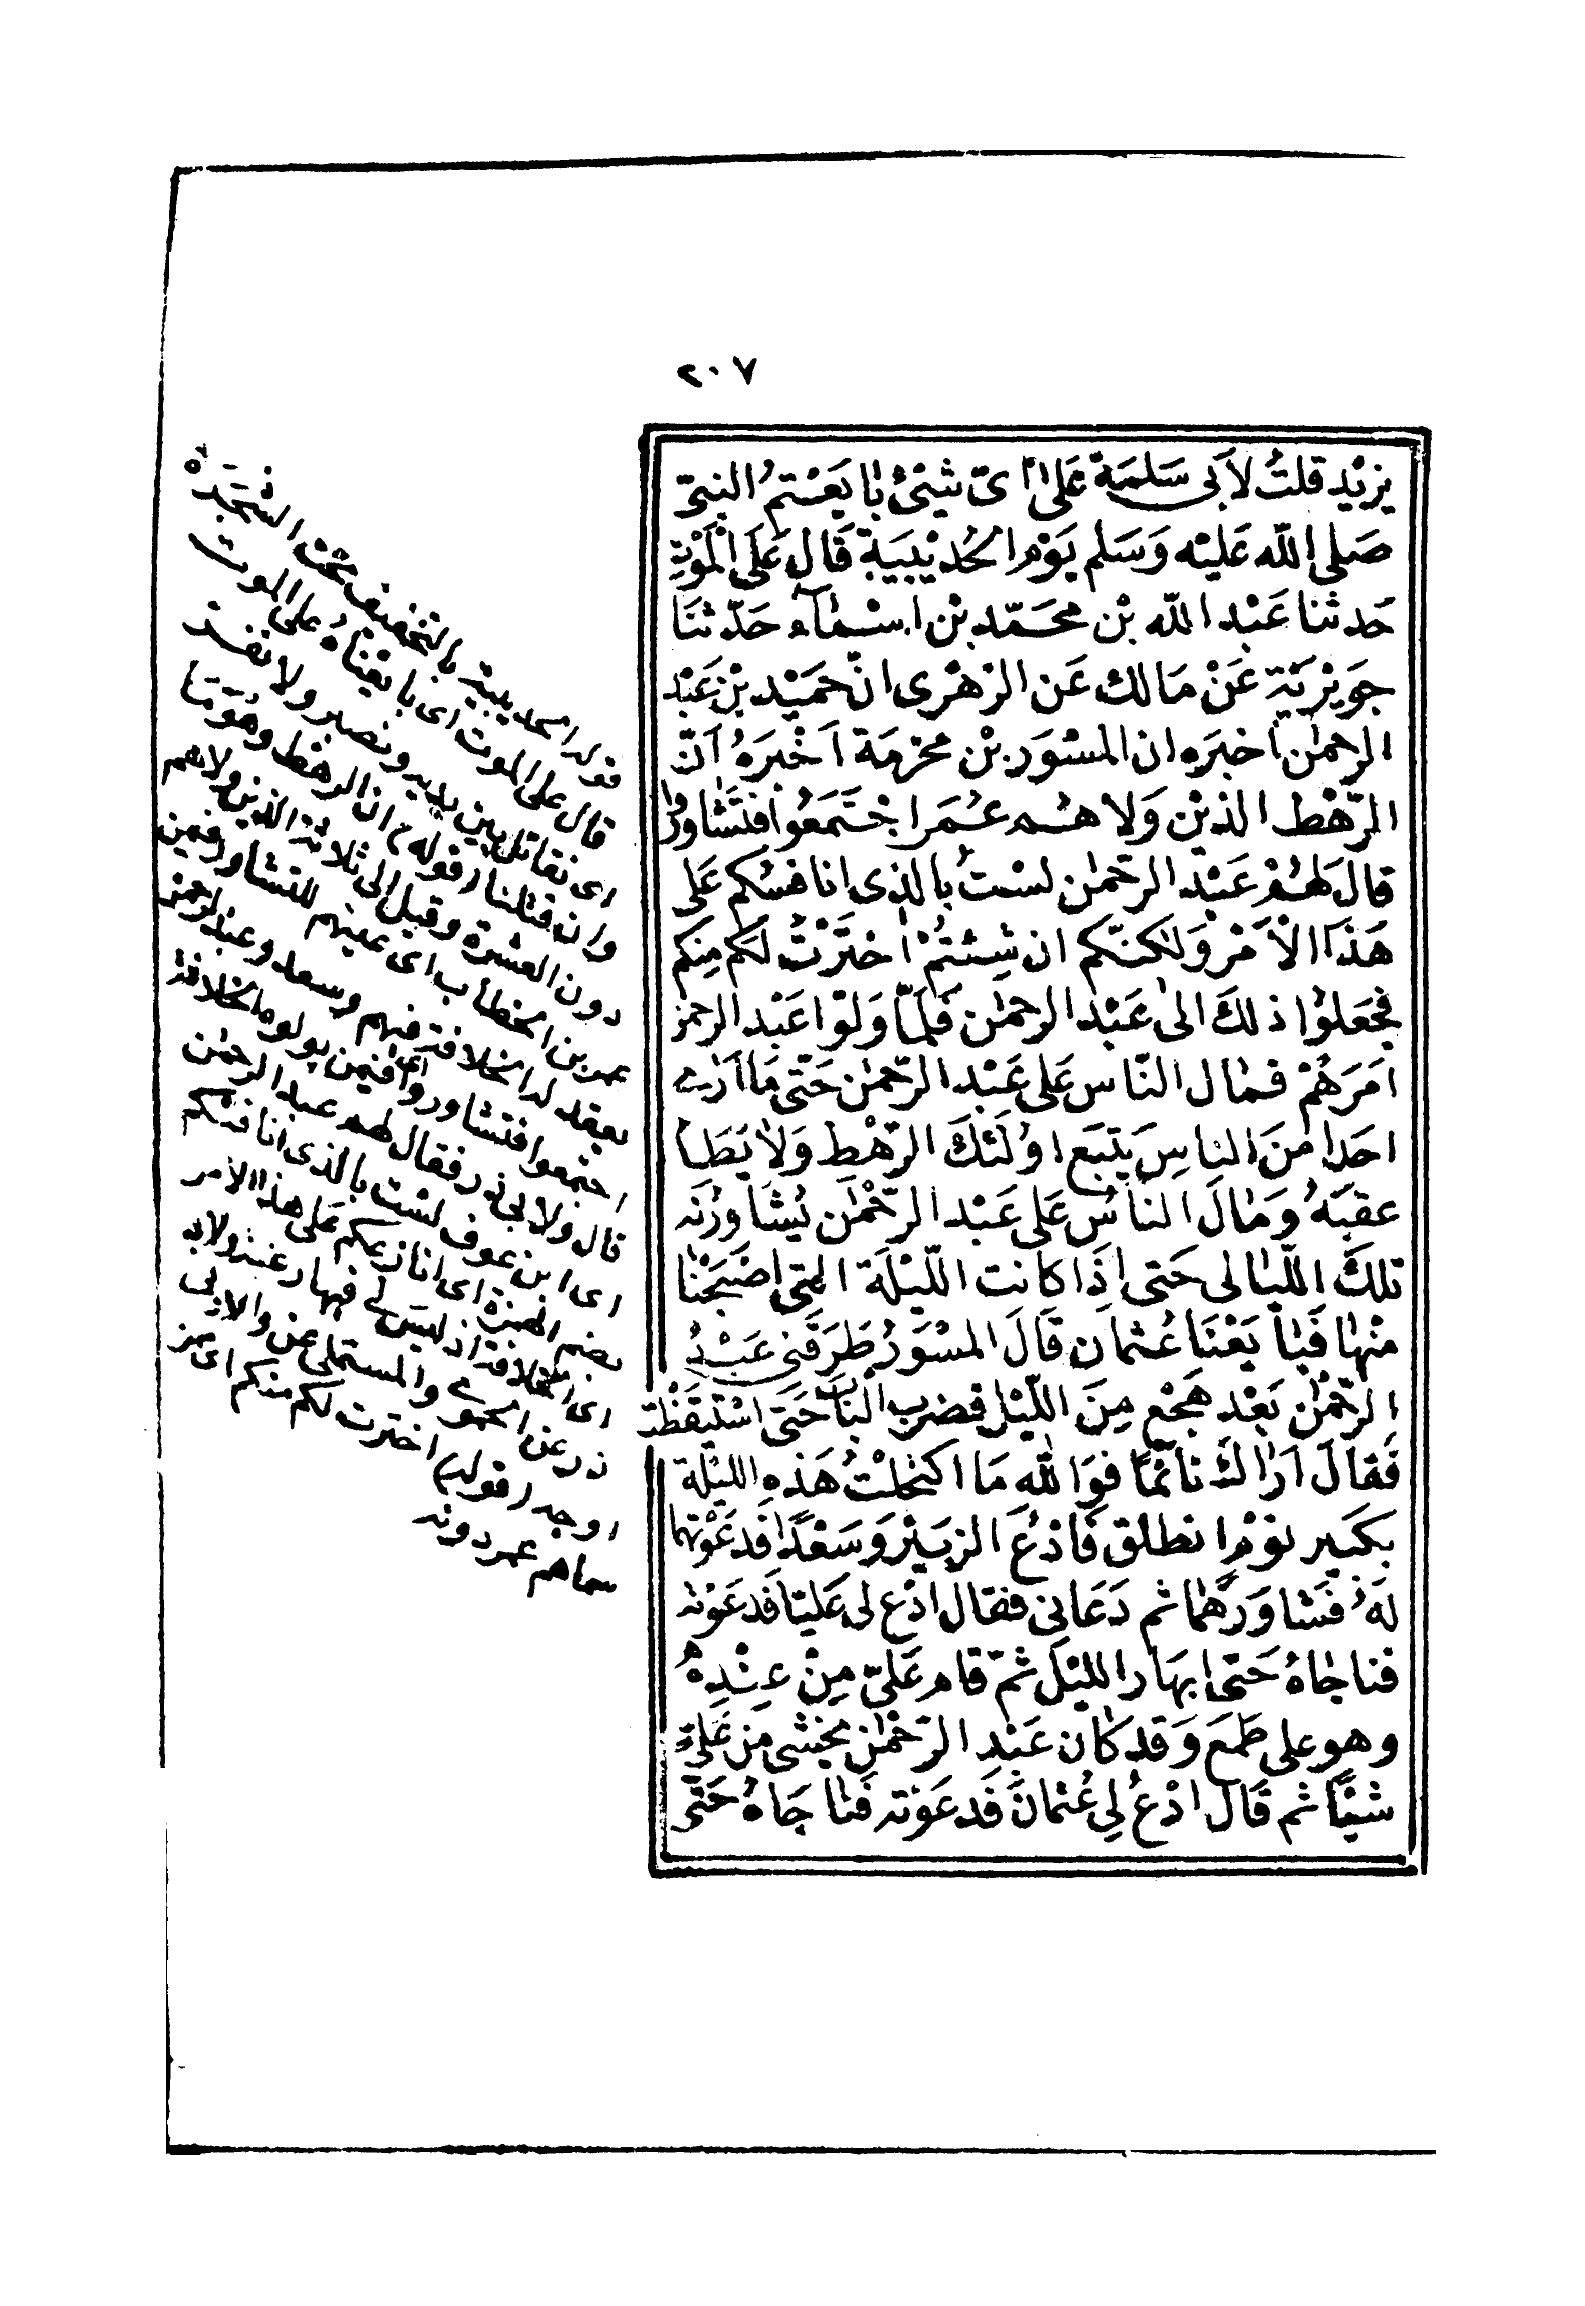 ٢٠٧
يزيْد قلتُ لأبى سَلمَةَ عَلى اىّ شيْئ بايَعْتمُ النبىّ
صَلى الله عَليْه وَسَلم يَوْم الحُديْبيَة قَال عَلَى الْمَوْتِ
حَدثنا عَبْد الله بْن محَمّد بْن اسْمَآء حَدّثنَا
جوَيْريَة عَنْ مَالك عَن الزهْرى انّ حمَيْد بْن عَبْد
الرحمٰن اخبَره ان المسْوَر بْن مخرمَة اَخْبَرَهُ اَنّ
الرّهْط الذيْن وَلاهُم عُمَر اجْتَمَعُوا فتَشاوَرُوا
قال لهُمْ عَبْد الرحمٰن لسْتُ بالذى انافسُكم عَلى
هَذا الْاَمْر وَلٰكنّكم ان شِئتُمْ اخْتَرْتُ لكم مِنكم
فجَعَلوْا ذلكَ الىٰ عَبْد الرحمٰن فلمّا وَلوْا عَبْد الرحمن
امَرَهُمْ فمَال النّاس عَلى عَبْد الرّحمٰن حَتّى مَا اَرَى
احَدا منَ الناسِ يَتبَع اوُلئكَ الرّهْطِ وَلاَ يَطَا
عقبَهُ وَمَالَ الناسُ عَلى عَبْد الرّحْمٰن يُشاورُنه
تلكَ اللّيَالى حَتى اِذَا كانت اللّيْلَة التى اصْبَحْنَا
منْهَا فَبَايَعْنَا عُثمان قَالَ المسْوَرُ طَرَقَنى عَبْدُ
الرّحْمٰن بَعْد هَجْعٍ مِنَ اللّيْل فضربَ البَابَ حَتى استَيقَظْت
فَقالَ ارَاكَ نائمًا فوَاللهِ مَا اكتحَلتُ هَذهِ الليْلَة
بكَبيْر نوْم انطلق فَادْعُ الزبَيْر وَسَعْدًا فدعَوْتهما
لهُ فشاوَرَهمَا ثم دَعَانى فقال ادْع لى عَليّا فدعَوْته
فناجَاهُ حَتى ابهَارا لليْل ثمّ قام عَلىّ مِنْ عنْدهُ
وهو على طمَعَ وَقد كان عَبْد الرّحْمٰن يخشى من عَلىٍّ
شيْئًا ثم قَال ادْعُ لِى عُثمانَ فدعَوْته فنَاجَاهُ حَتى
قوله الحديبية بالتخفيف تحت الشجرة
قال على الموت اى بايعناه على الموت
اى نقاتل بين يديه ونصابر ولا نفر
وان قتلنا (قوله) ان الرهط وهو ما
دون العشرة وقيل الى ثلاثة الذين ولاهم
عمر بن الخطاب اى عينهم للتشاور فيمن
يعقد له الخلافة فيهم وسعد وعبد الرحمن
اجتمعوا فتشاوروا اى فيمن يولوه الخلافة
قال ولابى ذر فقال لهم عبد الرحمن
اى ابن عوف لست بالذى انافسكم
بضم الهمزة اى انازعكم على هذا الامر
اى الخلافة اذ ليس لى فيها رغبة ولابى
ذر عن الحموى والمستملى عن والاولى
اوجه (قوله) اخترت لكم منكم اى ممن
سماهم عمر دونه